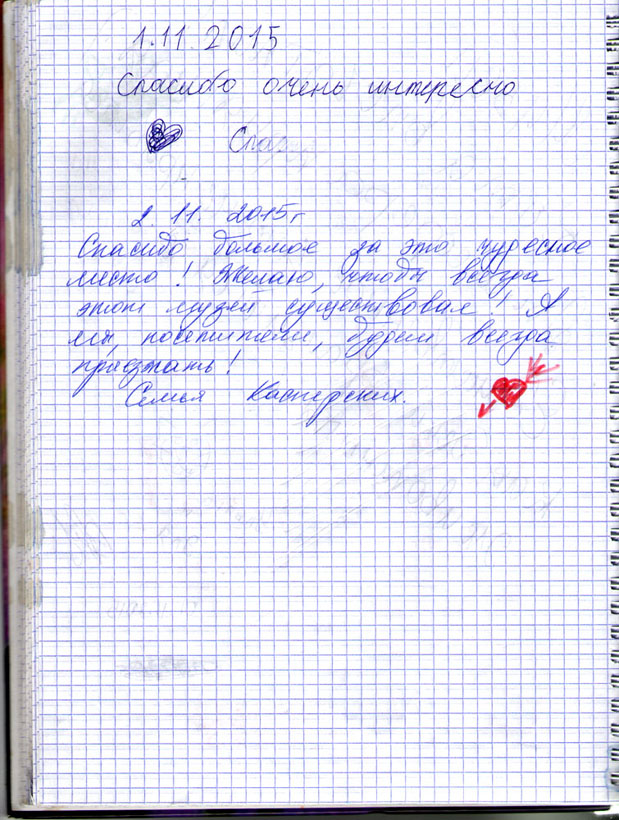 1.11.2015
Спасибо очень интересно
Спас
2. 11. 2015г
Спасибо большое за это чудесное
место! Желаю, чтобы всегда
этот музей существовал! А
мы, посетители, будем всегда
приезжать!
Семья Касперских.